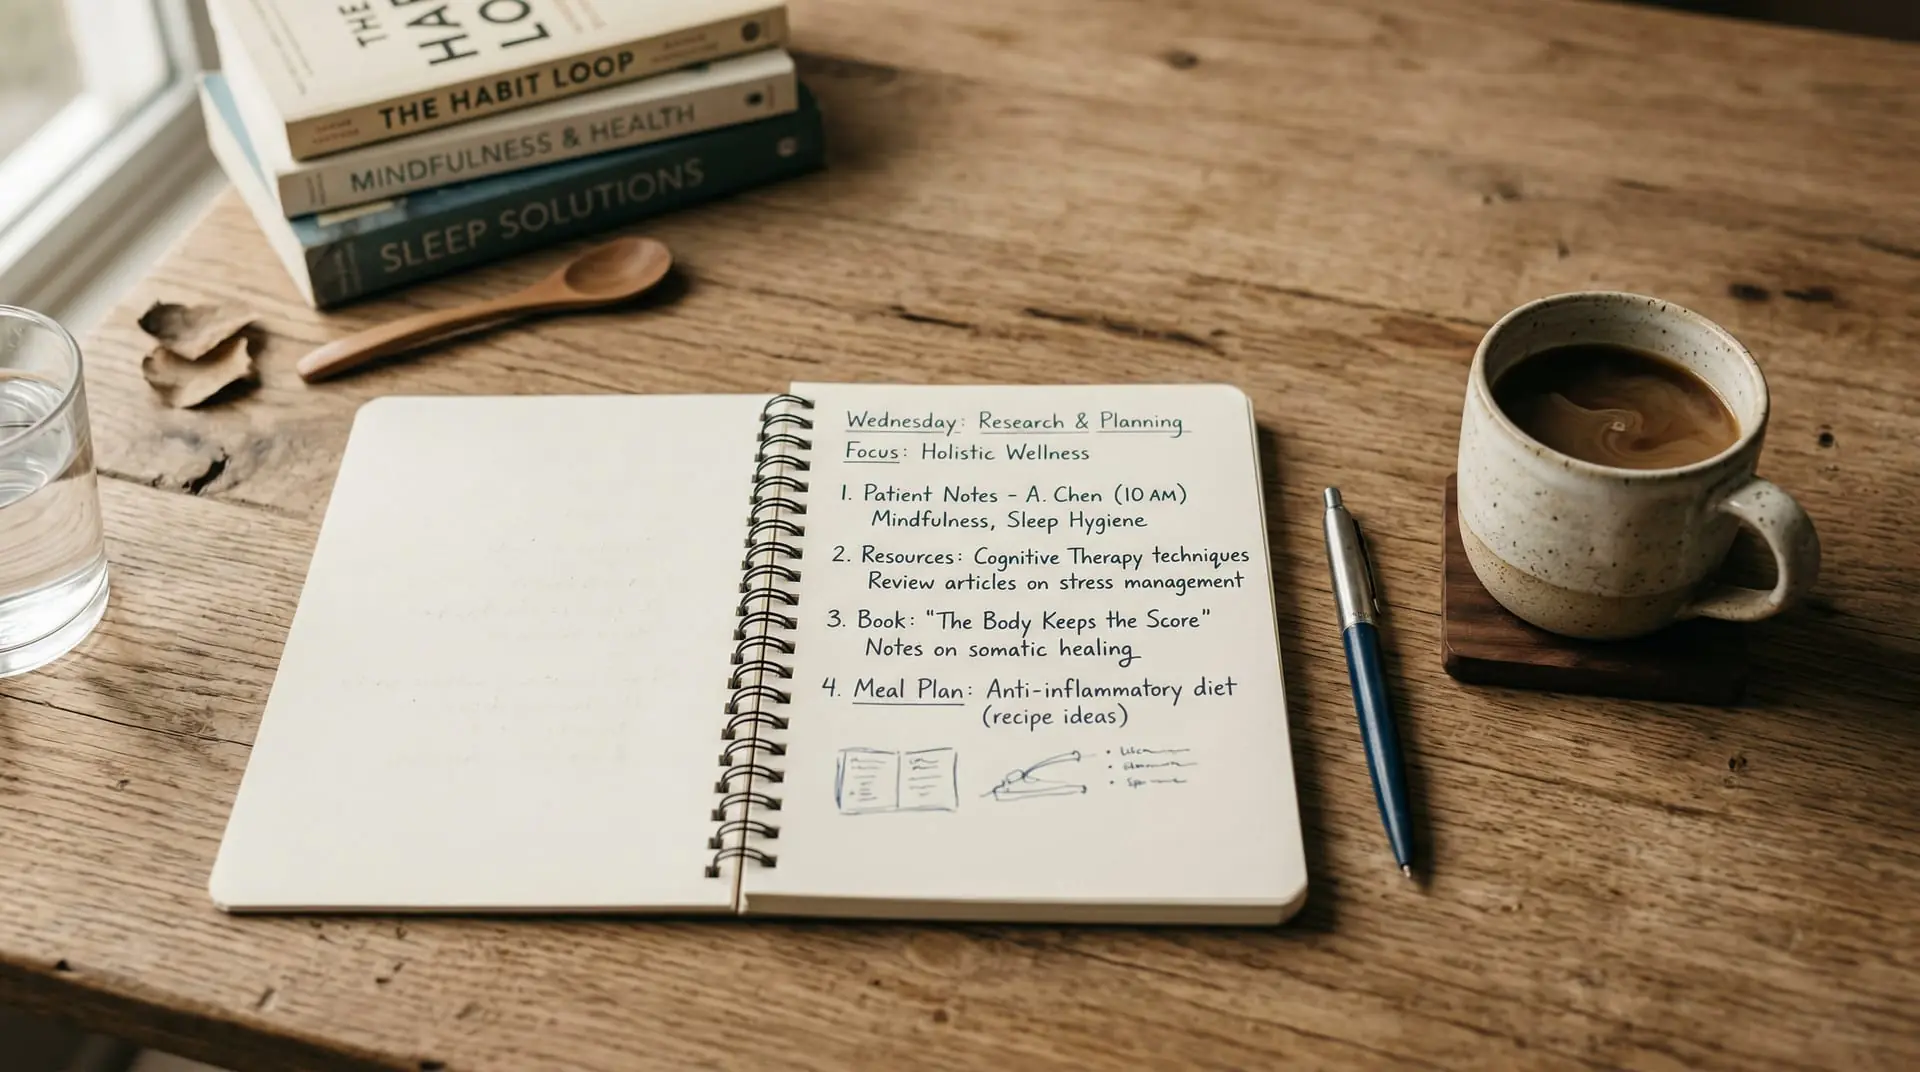 THE
HA
LO
THE HABIT LOOP
MINDFULNESS & HEALTH
SLEEP SOLUTIONS
Wednesday: Research & Planning
Focus: Holistic Wellness
1. Patient Notes - A. Chen (10 AM)
Mindfulness, Sleep Hygiene
2. Resources: Cognitive Therapy techniques
Review articles on stress management
3. Book: "The Body Keeps the Score"
Notes on somatic healing
4. Meal Plan: Anti-inflammatory diet
(recipe ideas)